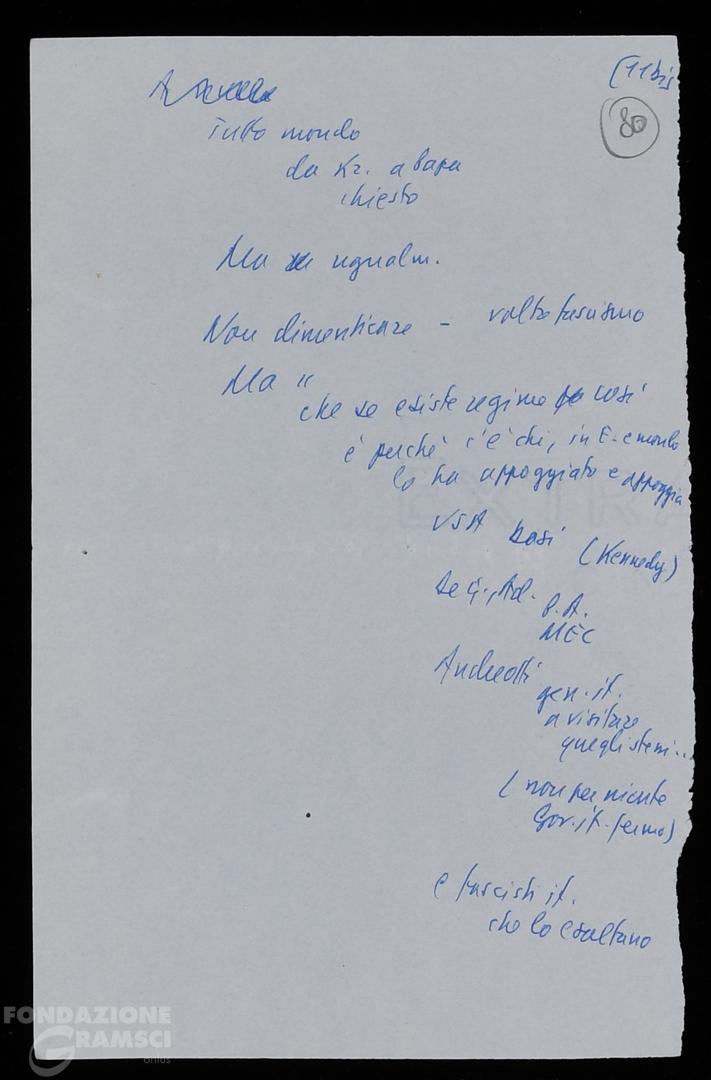 (11 bis
80
Tutto mondo
da Kr. a Papa
chiesto
Ma ugualm.
Non dimenticare - volto fascismo
Ma "
che se esiste regime così
è perché c'è chi, in E. e mondo
lo ha appoggiato e appoggia
USA basi (Kennedy)
De G., Ad. P.A.
MEC
Andreotti
gen. it.
a visitare
quegli stemi...
(non per niente
Gov. it. fermo)
e fascisti it.
che lo esaltano
FONDAZIONE
GRAMSCI
onlus